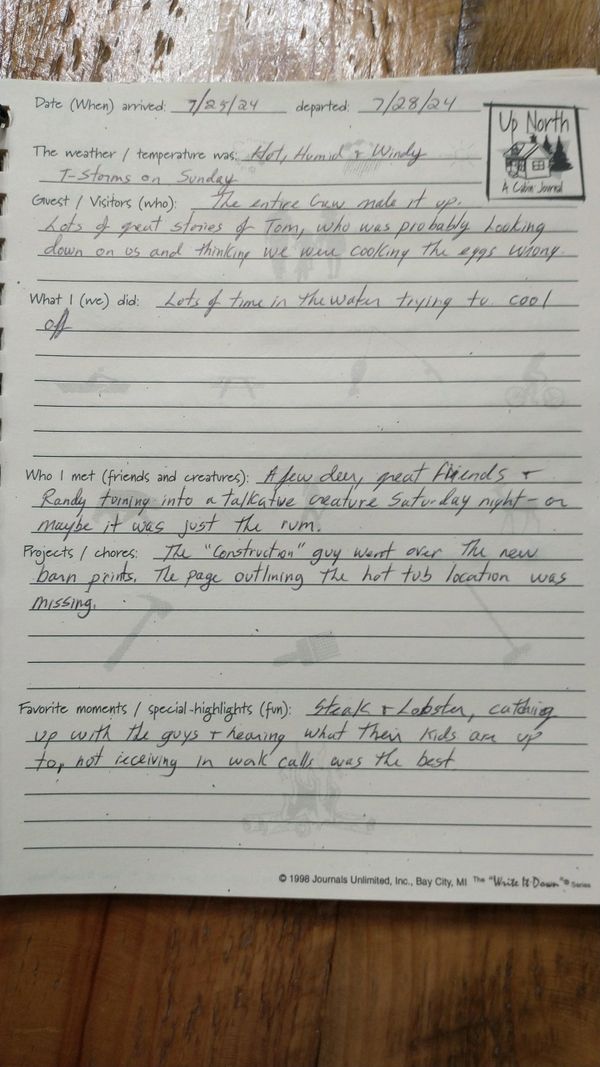 Date (When) arrived: 7/25/24 departed: 7/28/24
Up North
A Cabin Journal
The weather / temperature was: Hot, Humid + Windy
T-Storms on Sunday
Guest / Visitors (who): The entire Crew made it up.
Lots of great stories of Tom, who was probably looking
down on us and thinking we were cooking the eggs wrong.
What I (we) did: Lots of time in the water trying to cool
off
Who I met (friends and creatures): A few deer, great friends +
Randy turning into a talkative creature Saturday night - or
maybe it was just the rum.
Projects / chores: The "Construction" guy went over the new
barn prints. The page outlining the hot tub location was
missing.
Favorite moments / special-highlights (fun): Steak + Lobster, catching
up with the guys + hearing what their kids are up
to, not receiving in work calls was the best.
© 1998 Journals Unlimited, Inc., Bay City, MI The "Write It Down"® Series